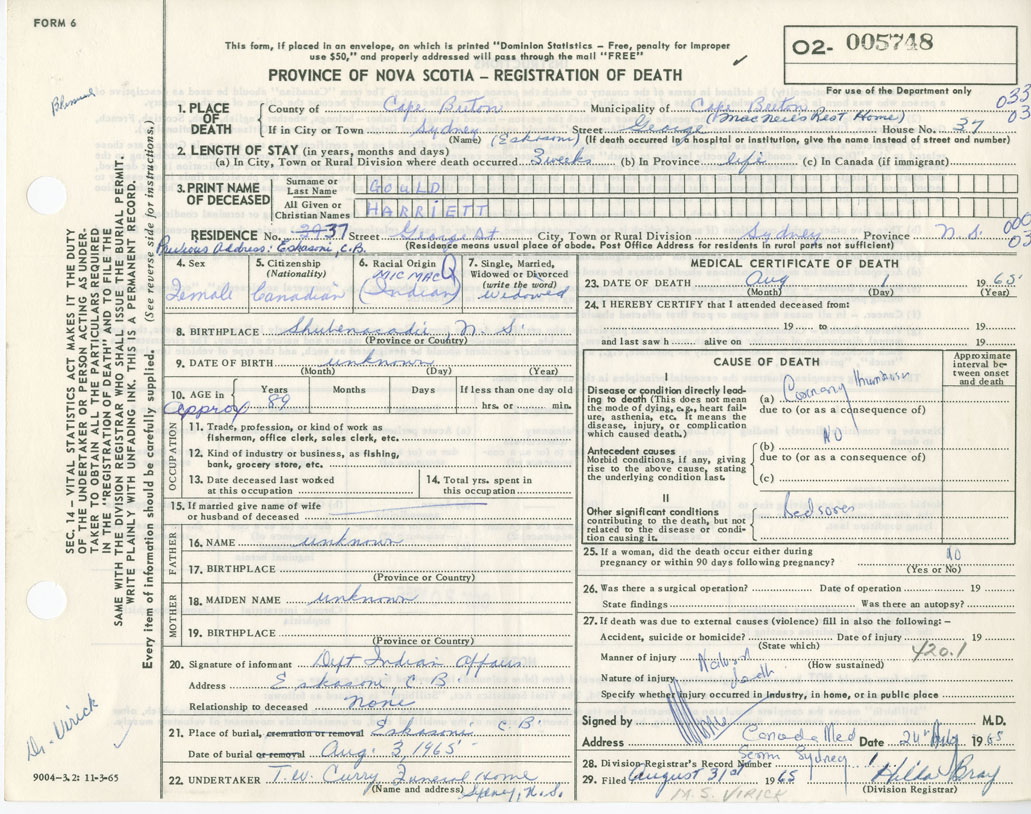 FORM 6
This form, if placed in an envelope, on which is printed "Dominion Statistics – Free, penalty for improper
use $50," and properly addressed will pass through the mail "FREE"
O2- 005748
PROVINCE OF NOVA SCOTIA – REGISTRATION OF DEATH
For use of the Department only
1. PLACE OF DEATH
County of Cape Breton Municipality of Cape Breton 033
(MacNeil's Rest Home) 03
If in City or Town Sydney Street George House No. 37
(Name) (Eskasoni) (If death occurred in a hospital or institution, give the name instead of street and number)
2. LENGTH OF STAY (in years, months and days)
(a) In City, Town or Rural Division where death occurred 3 weeks (b) In Province life (c) In Canada (if immigrant)
3. PRINT NAME OF DECEASED
Surname or Last Name GOULD
All Given or Christian Names HARRIETT
RESIDENCE No. 37 Street George St City, Town or Rural Division Sydney Province N.S.
Previous Address: Eskasoni, C.B. (Residence means usual place of abode. Post Office Address for residents in rural parts not sufficient)
SEC. 14 – VITAL STATISTICS ACT MAKES IT THE DUTY
OF THE UNDERTAKER OR PERSON ACTING AS UNDER-
TAKER TO OBTAIN ALL THE PARTICULARS REQUIRED
IN THE "REGISTRATION OF DEATH" AND TO FILE THE
SAME WITH THE DIVISION REGISTRAR WHO SHALL ISSUE THE BURIAL PERMIT.
WRITE PLAINLY WITH UNFADING INK. THIS IS A PERMANENT RECORD.
Every item of information should be carefully supplied. (See reverse side for instructions.)
4. Sex
Female
5. Citizenship
(Nationality)
Canadian
6. Racial Origin
MICMAC
(Indian)
7. Single, Married,
Widowed or Divorced
(write the word)
widowed
8. BIRTHPLACE Shubenacadie N.S.
(Province or Country)
9. DATE OF BIRTH unknown
(Month) (Day) (Year)
10. AGE in Years Months Days If less than one day old
approx 89 hrs. or min.
OCCUPATION
11. Trade, profession, or kind of work as
fisherman, office clerk, sales clerk, etc.
12. Kind of industry or business, as fishing,
bank, grocery store, etc.
13. Date deceased last worked
at this occupation
14. Total yrs. spent in
this occupation
15. If married give name of wife
or husband of deceased
FATHER
16. NAME unknown
17. BIRTHPLACE
(Province or Country)
MOTHER
18. MAIDEN NAME unknown
19. BIRTHPLACE
(Province or Country)
20. Signature of informant Dept Indian Affairs
Address Eskasoni, C.B.
Relationship to deceased None
21. Place of burial, cremation or removal Eskasoni C.B.
Date of burial or removal Aug. 3 1965
22. UNDERTAKER T.W. Curry Funeral Home
(Name and address) Sydney, N.S.
MEDICAL CERTIFICATE OF DEATH
23. DATE OF DEATH Aug 1 1965
(Month) (Day) (Year)
24. I HEREBY CERTIFY that I attended deceased from:
19 to 19
and last saw h alive on 19
CAUSE OF DEATH
Approximate
interval be-
tween onset
and death
I
Disease or condition directly lead-
ing to death (This does not mean
the mode of dying, e.g., heart fail-
ure, asthenia, etc. It means the
disease, injury, or complication
which caused death.)
(a) Coronary thrombosis
due to (or as a consequence of)
NO
Antecedent causes
Morbid conditions, if any, giving
rise to the above cause, stating
the underlying condition last.
(b)
due to (or as a consequence of)
(c)
II
Other significant conditions
contributing to the death, but not
related to the disease or condi-
tion causing it.
bedsores
25. If a woman, did the death occur either during
pregnancy or within 90 days following pregnancy? NO
(Yes or No)
26. Was there a surgical operation? Date of operation 19
State findings Was there an autopsy?
27. If death was due to external causes (violence) fill in also the following: –
Accident, suicide or homicide? Date of injury 19
(State which) 420.1
Manner of injury Natural
(How sustained)
Nature of injury death
Specify whether injury occurred in industry, in home, or in public place
Signed by M.D.
Address Canada Med Date 24 1965
Sydney
28. Division Registrar's Record Number
29. Filed August 31st 1965 Hilda Gray
(Division Registrar)
M.S. VIRICK
Dr. Virick
9004-3.2: 11-3-65